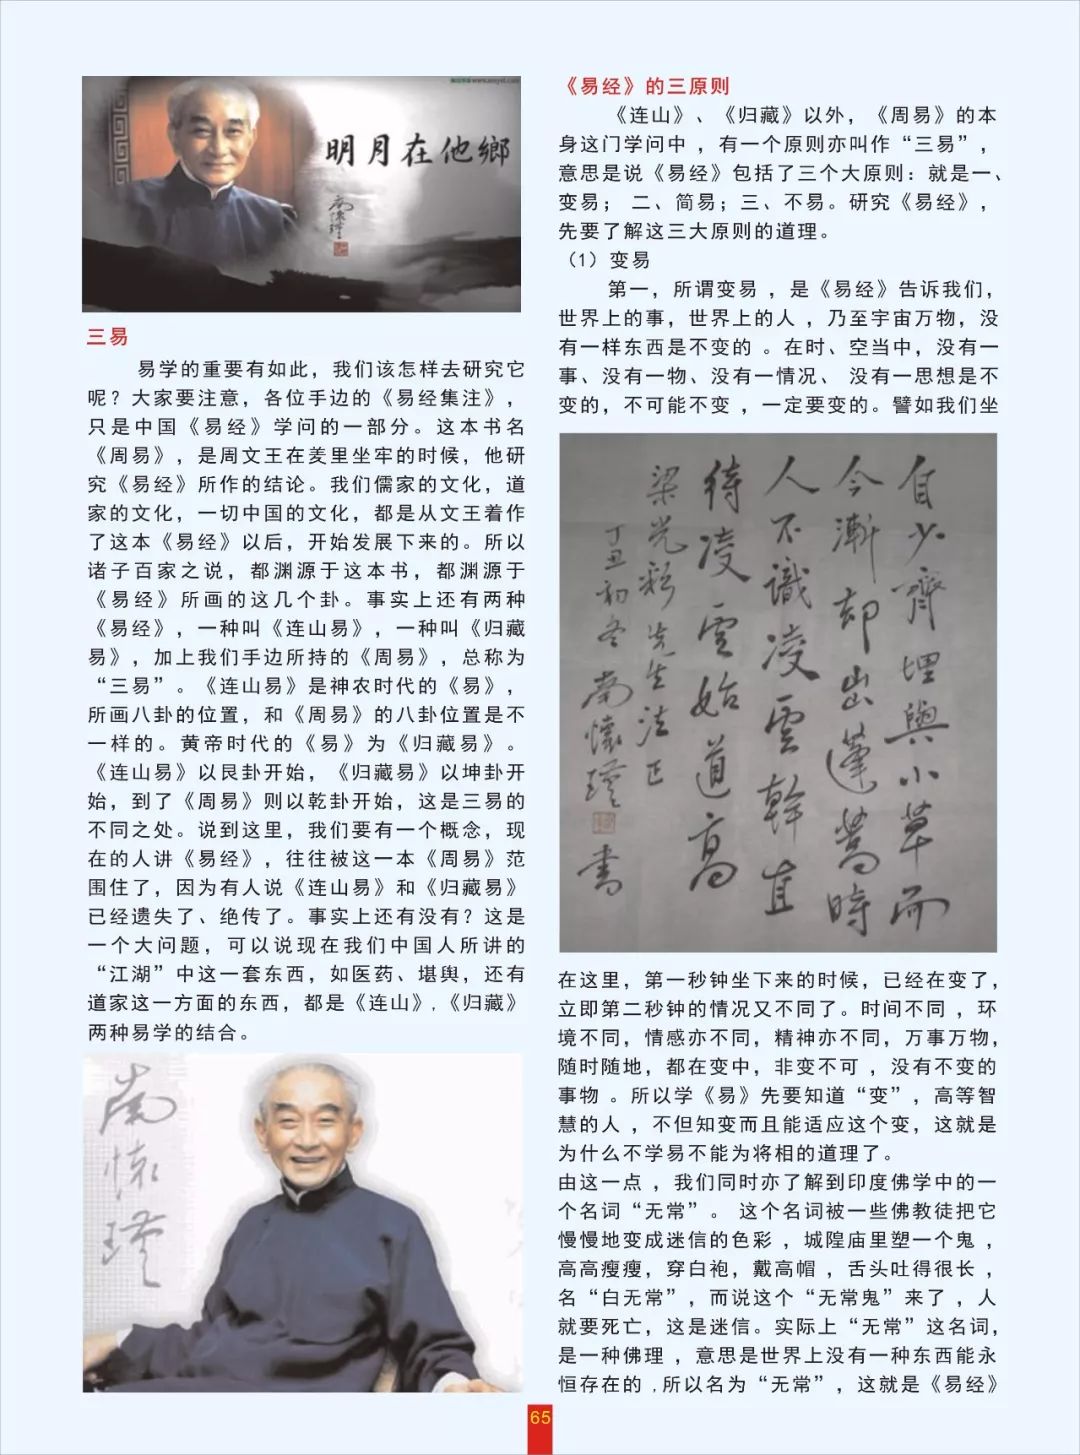 明月在他鄉
南懷瑾
三易
易学的重要有如此，我们该怎样去研究它
呢？大家要注意，各位手边的《易经集注》，
只是中国《易经》学问的一部分。这本书名
《周易》，是周文王在羑里坐牢的时候，他研
究《易经》所作的结论。我们儒家的文化，道
家的文化，一切中国的文化，都是从文王着作
了这本《易经》以后，开始发展下来的。所以
诸子百家之说，都渊源于这本书，都渊源于
《易经》所画的这几个卦。事实上还有两种
《易经》，一种叫《连山易》，一种叫《归藏
易》，加上我们手边所持的《周易》，总称为
“三易”。《连山易》是神农时代的《易》，
所画八卦的位置，和《周易》的八卦位置是不
一样的。黄帝时代的《易》为《归藏易》。
《连山易》以艮卦开始，《归藏易》以坤卦开
始，到了《周易》则以乾卦开始，这是三易的
不同之处。说到这里，我们要有一个概念，现
在的人讲《易经》，往往被这一本《周易》范
围住了，因为有人说《连山易》和《归藏易》
已经遗失了、绝传了。事实上还有没有？这是
一个大问题，可以说现在我们中国人所讲的
“江湖”中这一套东西，如医药、堪舆，还有
道家这一方面的东西，都是《连山》，《归藏》
两种易学的结合。
南懷瑾
《易经》的三原则
《连山》、《归藏》以外，《周易》的本
身这门学问中 ，有一个原则亦叫作“三易”，
意思是说《易经》包括了三个大原则：就是一、
变易； 二、简易；三、不易。研究《易经》，
先要了解这三大原则的道理。
（1）变易
第一，所谓变易 ，是《易经》告诉我们，
世界上的事，世界上的人 ，乃至宇宙万物，没
有一样东西是不变的 。在时、空当中，没有一
事、没有一物、没有一情况、 没有一思想是不
变的，不可能不变 ，一定要变的。譬如我们坐
自少齊埋與小草而
今漸却出蓬蒿時
人不識凌雲幹直
待凌雲始道高
梁光彩先生法正
丁丑初冬南懷瑾書
在这里，第一秒钟坐下来的时候，已经在变了，
立即第二秒钟的情况又不同了。时间不同 ，环
境不同，情感亦不同，精神亦不同，万事万物，
随时随地，都在变中，非变不可 ，没有不变的
事物 。所以学《易》先要知道“变”，高等智
慧的人 ，不但知变而且能适应这个变，这就是
为什么不学易不能为将相的道理了。
由这一点 ，我们同时亦了解到印度佛学中的一
个名词“无常”。 这个名词被一些佛教徒把它
慢慢地变成迷信的色彩 ，城隍庙里塑一个鬼 ，
高高瘦瘦，穿白袍，戴高帽 ，舌头吐得很长 ，
名“白无常”，而说这个“无常鬼”来了 ，人
就要死亡，这是迷信。实际上“无常”这名词，
是一种佛理 ，意思是世界上没有一种东西能永
恒存在的 ，所以名为“无常”，这就是《易经》
65